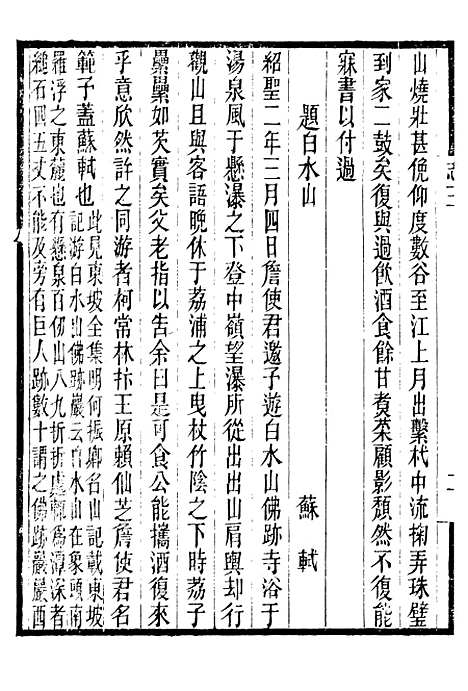 山燒壯甚俛仰度數谷至江上月出繫杙中流掬弄珠璧
到家二鼓矣復與過飲酒食餘甘煑菜顧影頽然不復能
寐書以付過
題白水山
蘇軾
紹聖二年三月四日詹使君邀予遊白水山佛跡寺浴于
湯泉風于懸瀑之下登中嶺望瀑所從出出山肩輿却行
觀山且與客語晚休于荔浦之上曳杖竹陰之下時荔子
纍纍如芡實矣父老指以告余曰是可食公能攜酒復來
乎意欣然許之同游者柯常林抃王原賴仙芝詹使君名
範予蓋蘇軾也
此見東坡全集明何振卿名山記載東坡
記游白水山佛跡巖云白水山在象頭南
羅浮之東麓也有懸泉百仞山八九折折處輒爲潭深者
縋石四五丈不能及旁有巨人跡數十謂之佛跡巖巖西